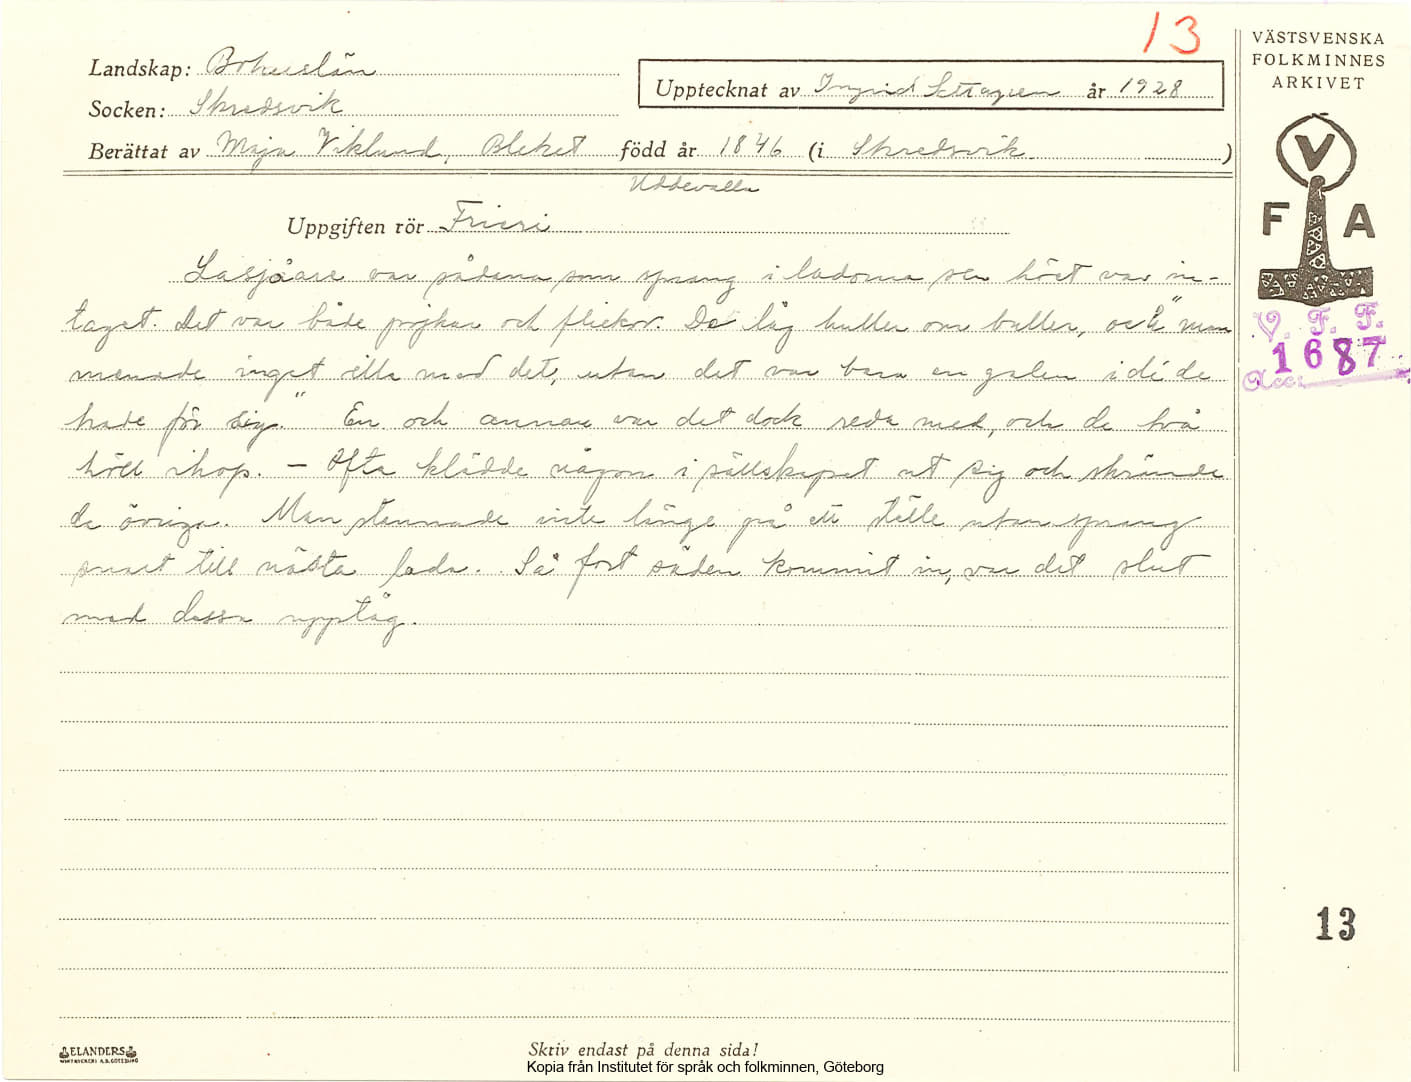 13
VÄSTSVENSKA
FOLKMINNES
ARKIVET
Landskap: Bohuslän
Upptecknat av Ingrid år 1928
Socken: Skredsvik
Berättat av Maja Viklund, Bleket född år 1846 (i Skredsvik)
Uddevalla
V
F A
Uppgiften rör Frieri
Lasjåare var sådana som sprang i ladorna sen höet var in-
taget. Det var både pojkar och flickor. De låg huller om buller, och "man
menade inget illa med det, utan det var bara en galen idé de
hade för sig." En och annan var det dock reda med, och de två
höll ihop. – Ofta klädde någon i sällskapet ut sig och skrämde
de övriga. Man stannade inte länge på ett ställe utan sprang
snart till nästa lada. Så fort säden kommit in, var det slut
med dessa upptåg.
V. F. F.
1687
Acc:
13
ELANDERS
Skriv endast på denna sida!
Kopia från Institutet för språk och folkminnen, Göteborg